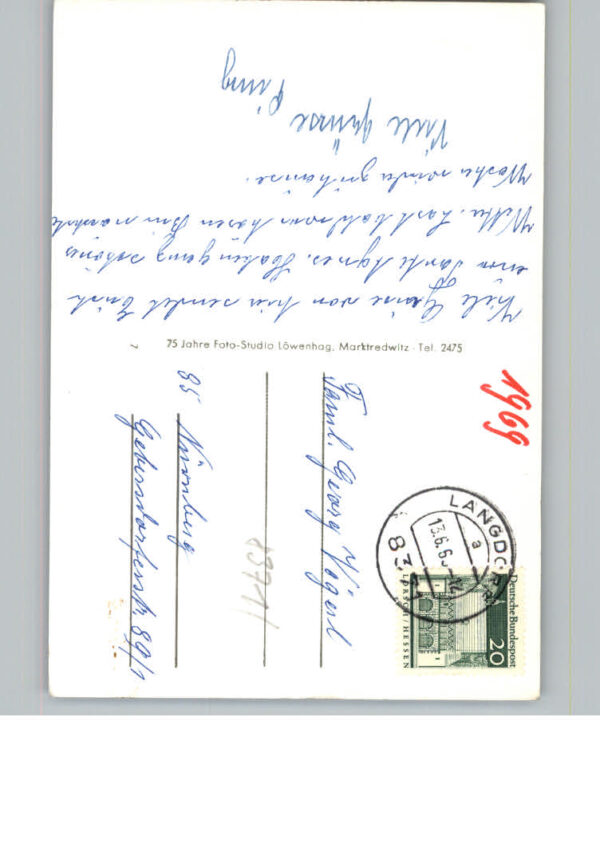 Viele Grüße von hier sendet Euch
eure Tante Agnes. Haben ganz schönes
Wetter. Laßt bald von hören Bin nächste
Woche wieder zuhause.
Viele Grüsse
75 Jahre Foto-Studio Löwenhag, Marktredwitz · Tel. 2475
7
1969
Faml. Georg Vogerl
85 Nürnberg
Gebersdorferstr 89/1
8371
LANGDORF
13.6.6
a
8371
Deutsche Bundespost
20
LORSCH/HESSEN